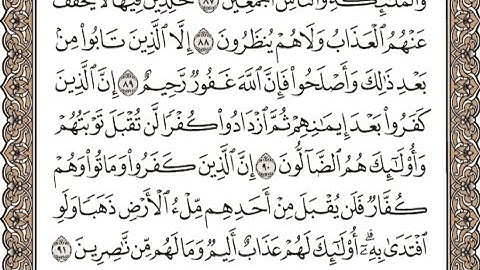 وَالْمَلَٰٓئِكَةِ وَالنَّاسِ أَجْمَعِينَ ٨٧ خَٰلِدِينَ فِيهَا لَا يُخَفَّفُ
عَنْهُمُ الْعَذَابُ وَلَا هُمْ يُنظَرُونَ ٨٨ إِلَّا الَّذِينَ تَابُوا۟ مِنۢ
بَعْدِ ذَٰلِكَ وَأَصْلَحُوا۟ فَإِنَّ اللَّهَ غَفُورٌ رَّحِيمٌ ٨٩ إِنَّ الَّذِينَ
كَفَرُوا۟ بَعْدَ إِيمَٰنِهِمْ ثُمَّ ازْدَادُوا۟ كُفْرًا لَّن تُقْبَلَ تَوْبَتُهُمْ
وَأُو۟لَٰٓئِكَ هُمُ الضَّآلُّونَ ٩٠ إِنَّ الَّذِينَ كَفَرُوا۟ وَمَاتُوا۟ وَهُمْ
كُفَّارٌ فَلَن يُقْبَلَ مِنْ أَحَدِهِم مِّلْءُ الْأَرْضِ ذَهَبًا وَلَوِ
افْتَدَىٰ بِهِۦٓ ۗ أُو۟لَٰٓئِكَ لَهُمْ عَذَابٌ أَلِيمٌ وَمَا لَهُم مِّن نَّٰصِرِينَ ٩١